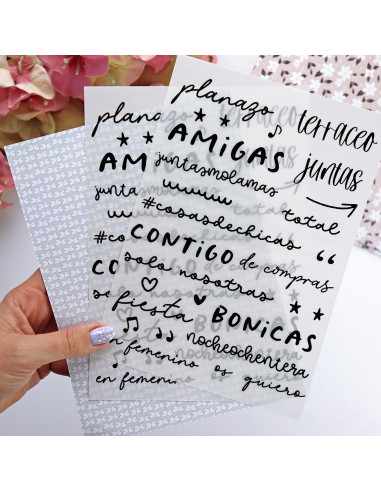 planazo
terraceo
AMIGAS
juntas
juntasmolamas
#cosasdechicas
total
CONTIGO de compras
solo nosotras
fiesta
BONICAS
nocheochentera
en femenino os quiero
plana
AM
junta
#co
CO
so
en femenino